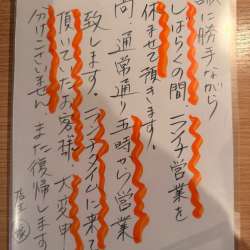 誠に勝手ながら
しばらくの間ランチ営業を
休ませて頂きます。
尚、通常通り五時から営業
致します。ランチタイムに来て
頂いていたお客様大変申し
分けございません。また復帰します
店主